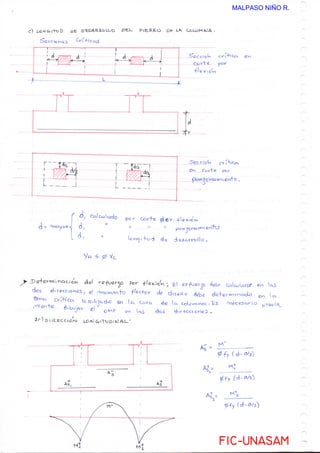 MALPASO NIÑO R.
c) LONGITUD DE DESARROLLO DEL FIERRO DE LA COLUMNA.
Secciones Críticas
d d d d
Sección crítica en
corte por
flexión
L
d
r
d/2
d/2
Sección crítica
en corte por
punzonamiento.
d = mayor
d, calculado por corte por flexión
d, " " " " punzonamiento
d, " longitud de desarrollo.
Vu ≤ φ Vc
➤ Determinación del refuerzo por flexión: El refuerzo debe calcularse en las
dos direcciones, el momento flector de diseño debe determinarse en la
zona crítica localizada en la cara de la columna. Es necesario previa-
mente dibujar el DMF en las dos direcciones.
1º) DIRECCIÓN LONGITUDINAL:
M⁻
φ fy (d-a/2)
φ fy (d-a/2)
φ fy (d-a/2)
M⁻
FIC-UNASAM